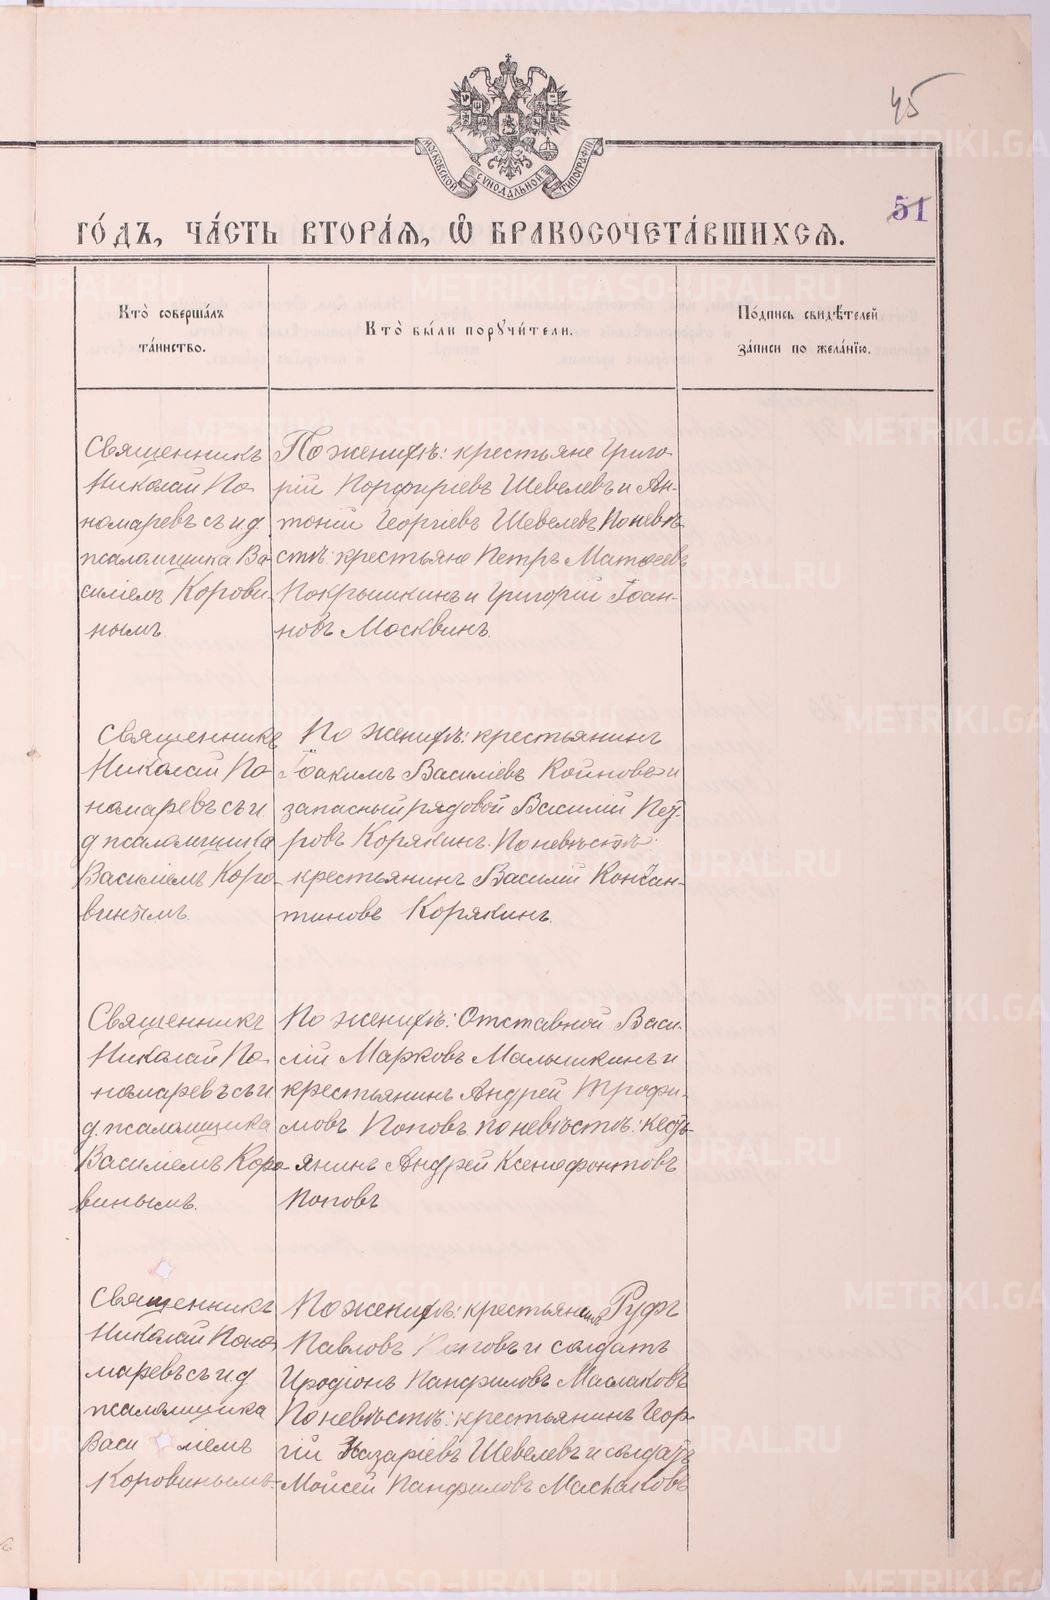 45
51
МОСКОВСКОЙ СѴНОДАЛЬНОЙ ТИПОГРАФІИ
ГО́ДЪ, ЧА́СТЬ ВТОРА́Ѧ, Ѽ БРАКОСОЧЕТА́ВШИХСѦ.
Кто̀ соверша́лъ
та́инство.
Кто̀ бы́ли порꙋчи́тели.
По́дпись свидѣ́телей
за́писи по жела́нїю.
Священникъ
Николай По
номаревъ съ и.д.
псаломщика Ва
силіемъ Корови
нымъ.
По женихѣ: крестьяне Григо-
рій Порфиріевъ Шевелевъ и Ан-
тоній Георгіевъ Шевелевъ По невѣ-
стѣ: крестьяне Петръ Матѳеевъ
Покрышкинъ и Григорій Іоан-
новъ Москвинъ.
Священникъ
Николай По
номаревъ съ и
д псаломщика
Василіемъ Коро
винымъ.
По женихѣ: крестьянинъ
Іоакимъ Василіевъ Койновъ и
запасный рядовой Василій Пет-
ровъ Корякинъ. По невѣстѣ:
крестьянинъ Василій Констан-
тиновъ Корякинъ.
Священникъ
Николай По
номаревъ съ и
д. псаломщика
Василіемъ Коро
винымъ.
По женихѣ: Отставной Васи-
лій Марковъ Мальчикинъ и
крестьянинъ Андрей Трофи-
мовъ Поповъ по невѣстѣ: кесть-
янинъ Андрей Ксенофонтовъ
Поповъ
Священникъ
Николай Поно
маревъ съ и д
псаломщика
Василіемъ
Коровинымъ.
По женихѣ: крестьянинъ Руфъ
Павловъ и солдатъ
Иродіонъ Панфиловъ Маслаковъ
По невѣстѣ: крестьянинъ Геор-
гій Назаріевъ Шевелевъ и солдатъ
Моисей Панфиловъ Маслаковъ